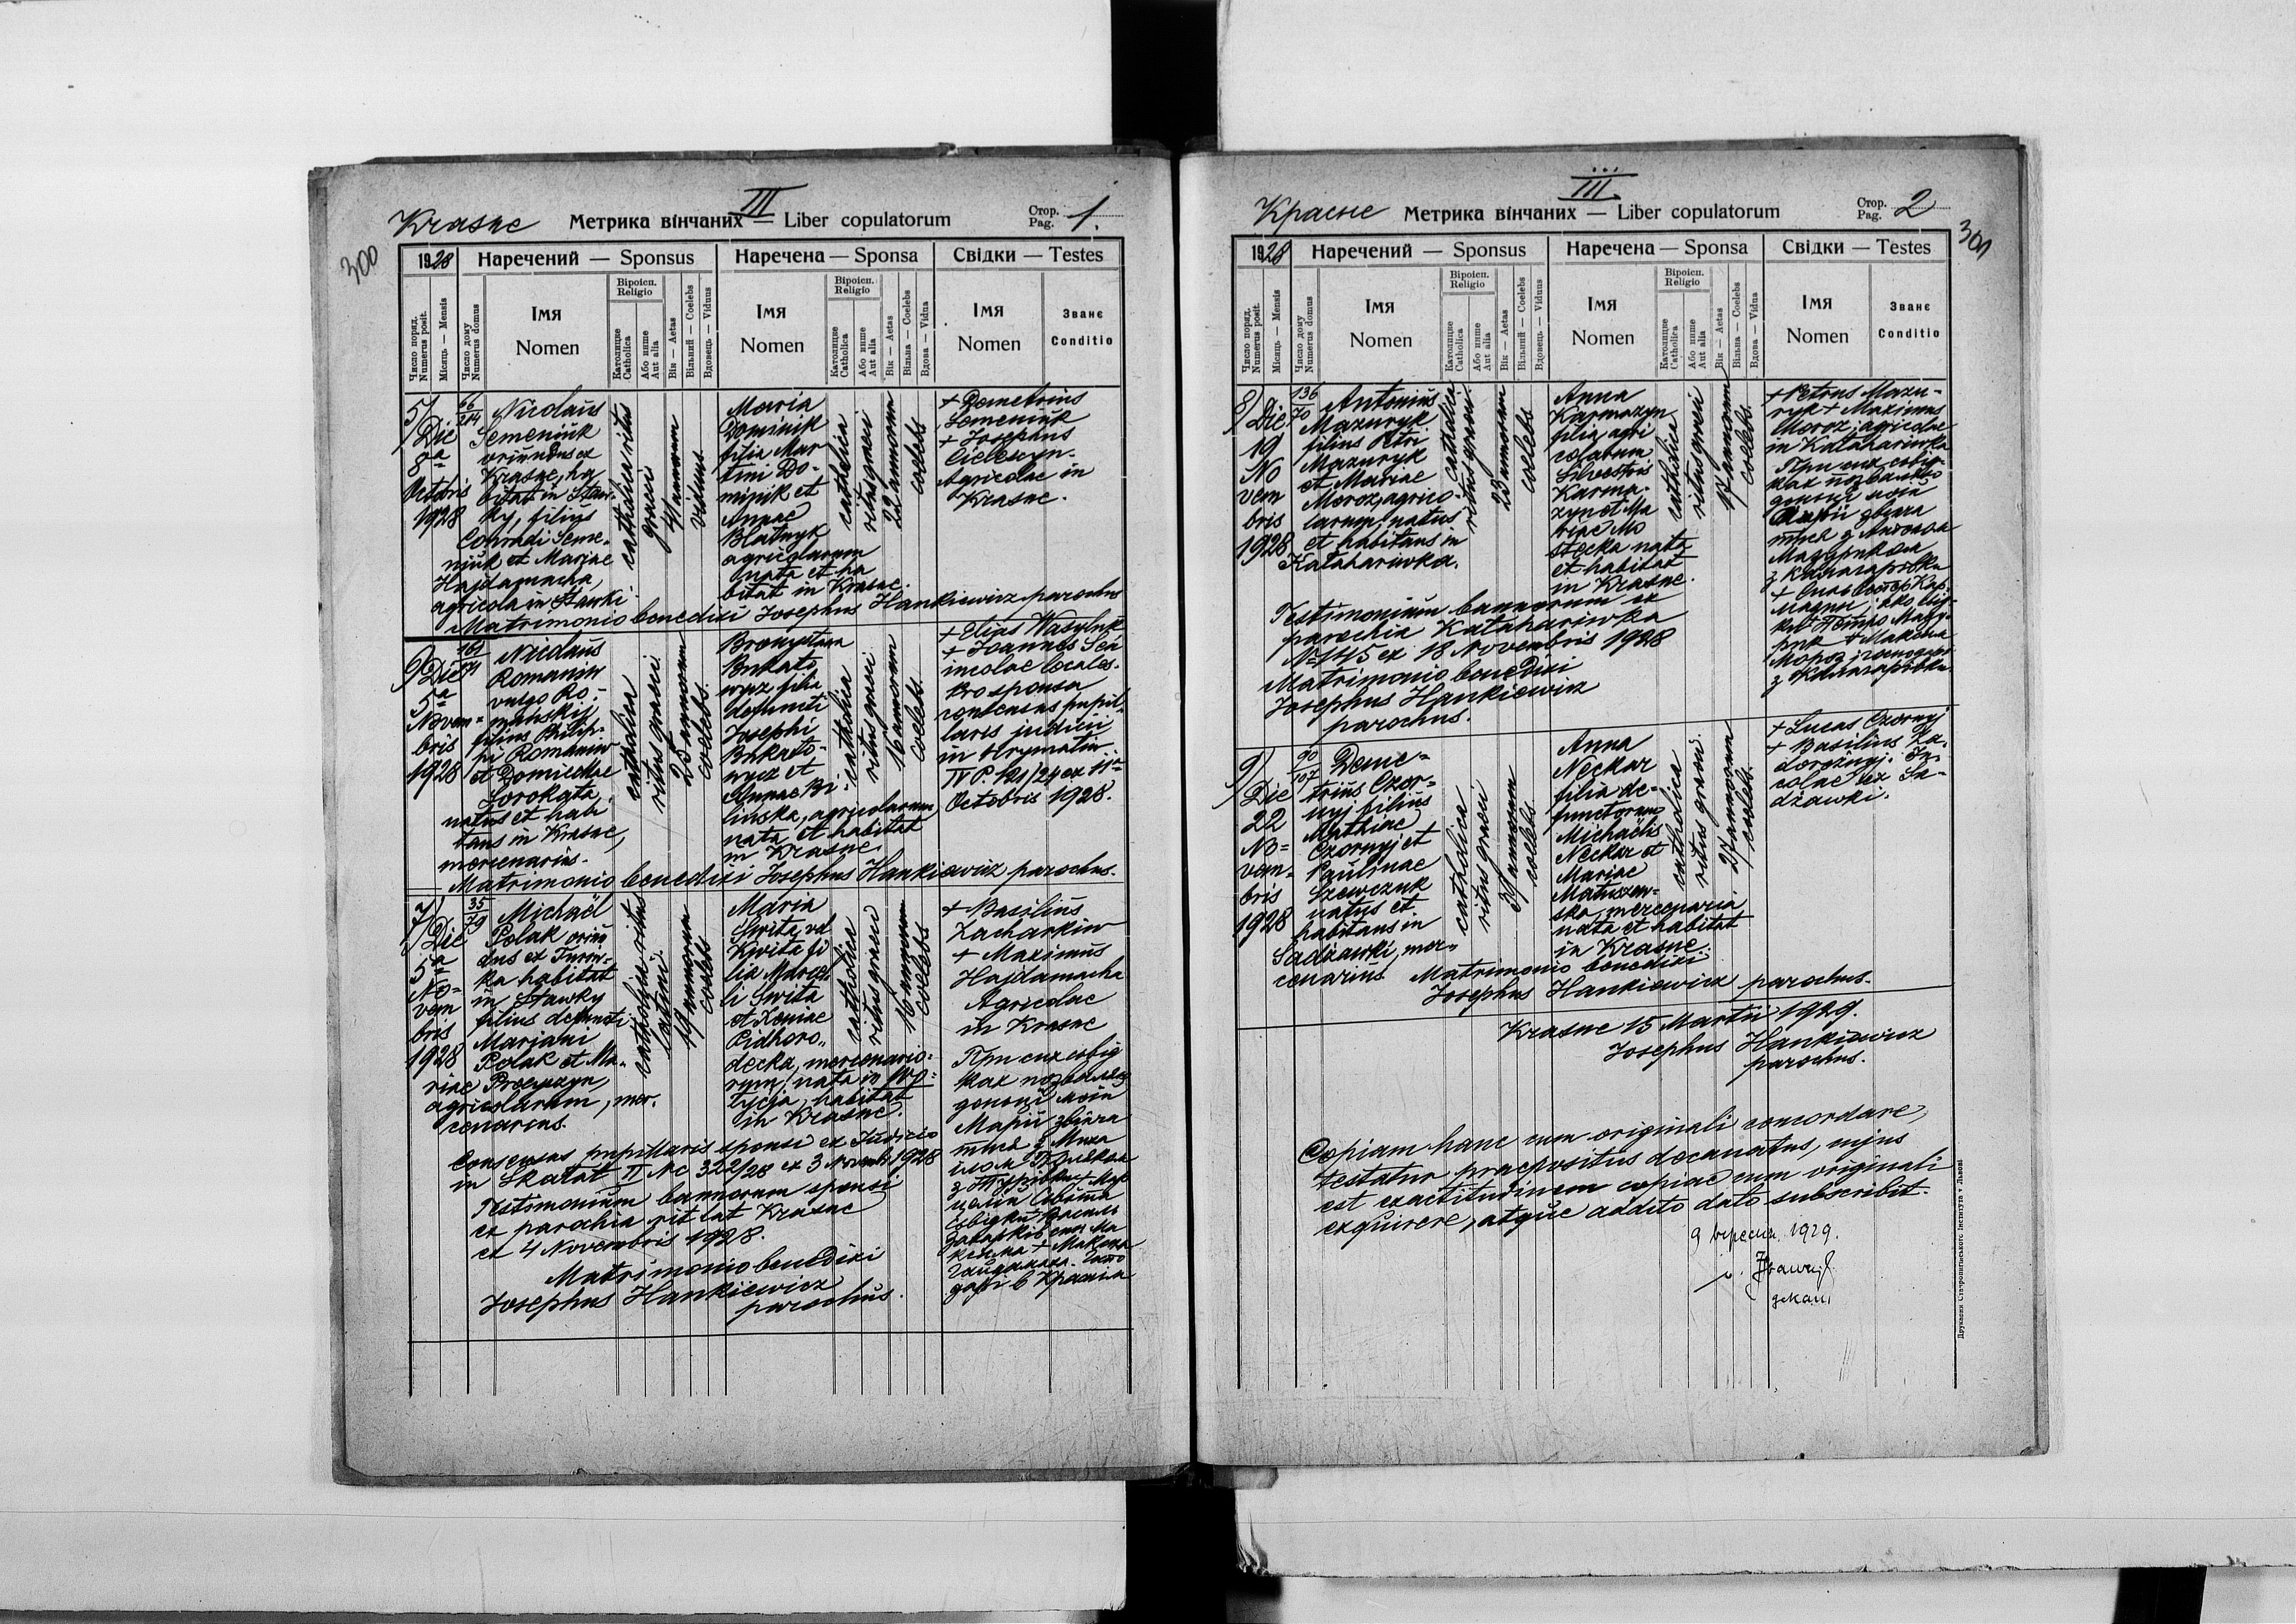 300
Krasne
III
Метрика вінчаних — Liber copulatorum
Стор. Pag. 1.
1928
Наречений — Sponsus
Наречена — Sponsa
Свідки — Testes
Число поряд. Numerus posit.
Місяць — Mensis
Число дому Numerus domus
Імя Nomen
Віроісп. Religio
Католицке Catholica
Або инше Aut alia
Вік — Aetas
Вільний — Coelebs
Вдовець — Viduus
Імя Nomen
Віроісп. Religio
Католицке Catholica
Або инше Aut alia
Вік — Aetas
Вільна — Coelebs
Вдова — Vidua
Імя Nomen
Званє Conditio
5/
Die
8a
1928
66
Nicolaus
Semeniuk
oriundus ex
Krasne, ha
bitat in Staw-
ky, filius
Conradi Seme-
niuk et Mariae
Hajdamacha,
agricola in Stawki
catholica ritus
graeci
41 annorum
viduus
Maria
Dominik
filia Mar
tini Do-
minik et
Annae
Blatnyk
agricolarum
nata et ha
bitat in Krasne.
catholica
ritus graeci
22 annorum
coelebs
+ Demetrius
Semeniuk
+ Josephus
Agricolae in
Krasne.
Matrimonio benedixi Josephus Hankiewicz parochus
6)
Die
5a
Novem=
bris
1928
161
Nicolaus
Romaniw
vulgo Ro-
manskij
filius Philip-
pi Romaniw
et Domicellae
Sorokata
natus et habi
tans in Krasne,
mercenarius.
catholica
ritus graeci
25 annorum
coelebs.
Bronyslawa
Bukato
wycz filia
defuncti
Josephi
Bukato-
wycz et
Annae Bi-
linska, agricolarum
nata et habitat
in Krasne.
catholica
ritus graeci
16 annorum
coelebs.
+ Elias Wasyluk
+ Joannes
incolae locales.
Pro sponsa
consensus pupil-
laris judicii
in Hrymaliw
IV P. 121/24 ex 11a
Octobris 1928.
Matrimonio benedixi Josephus Hankiewicz parochus.
7)
Die
5a
No=
vem
bris
1928
35
79
Michaël
Polak oriun
dus ex Turiw-
ka habitat
in Stawky
filius defuncti
Marjani
Polak et Ma-
riae
agricolarum, mer.
cenarius.
catholica ritus
latini.
19 annorum
coelebs
Maria
Swita vel
Kwita fi
lia Marcel
li Swita
et Xeniae
Pidhoro-
decka, mercenario-
rum, nata in
habitat
in Krasne.
catholica
ritus graeci
16 annorum
coelebs
+ Basilius
Zacharkiw
+ Maximus
Hajdamacha
Agricolae
in Krasne
При сих свід
ках позваляю
доньці моїй
Марії звінча
тися з Миха
йлом Поляком
з Турівки + Мар
целій Свита
Свідки Василь
Захарків син Ма
ксима + Максим
Гайдамаха. Госпо
дарі в Краснім
Consensus pupillaris sponsi ex Judicio
in Skałat II Nc 322/28 ex 3 Novembr 1928
Testimonium bannorum sponsi
ex parochia rit lat Krasne
ex 4 Novembris 1928.
Matrimonio benedixi
Josephus Hankiewicz
parochus.
Красне
III
Метрика вінчаних — Liber copulatorum
Стор. Pag. 2
301
1928
Наречений — Sponsus
Наречена — Sponsa
Свідки — Testes
Число поряд. Numerus posit.
Місяць — Mensis
Число дому Numerus domus
Імя Nomen
Віроісп. Religio
Католицке Catholica
Або инше Aut alia
Вік — Aetas
Вільний — Coelebs
Вдовець — Viduus
Імя Nomen
Віроісп. Religio
Католицке Catholica
Або инше Aut alia
Вік — Aetas
Вільна — Coelebs
Вдова — Vidua
Імя Nomen
Званє Conditio
8)
Die
19
No
vem
bris
1928
136
70
Antonius
Mazuryk
filius Petri
Mazuryk
et Mariae
Moroz, agrico-
larum, natus
et habitans in
Kałaharivka.
catholica
ritus graeci
23 annorum
coelebs
Anna
Karmazyn
filia agri
colarum
Silvestris
Karma-
zyn et Ma
riae Mo
stecka nata
et habitat
in Krasne.
catholica
ritus graeci
17 annorum
coelebs.
+ Petrus Mazu-
ryk + Maximus
Moroz, agricolae
in Kałahariwka
При сих свід-
ках позваляю
доньці моїй
звінча
тися з Антоном
Мазуриком
з Калагарівки
+ Сильвестер Кар-
мазин, яко свід-
ки + Петро Мазу-
рик + Максим
Мороз, господарі
з Калагарівки
Testimonium bannorum ex
parochia Kałahariwka
No 145 ex 18 Novembris 1928
Matrimonio benedixi
Josephus Hankiewicz
parochus.
9)
Die
22
No=
vem-
bris
1928
90
107
Deme-
trius Czor-
nyj filius
Mathiae
Czornyj et
Paulinae
Szewczuk
natus et
habitans in
Sadzawki, mer-
cenarius
catholica
ritus graeci
annorum
coelebs
Anna
Neckar
filia de-
functorum
Michaëlis
Neckar et
Mariae
Matuszew-
ska, mercenaria
nata et habitat
in Krasne.
catholica
ritus graeci.
27 annorum
coelebs.
+ Lucas Czornyj
+ Basilius Za-
dorożnyj. In-
colae ex Sa-
dzawki.
Matrimonio benedixi
Josephus Hankiewicz parochus.
Krasne 15 Martii 1929.
Josephus Hankiewicz
parochus.
Copiam hanc cum originali concordare,
testatur praepositus decanatus, cujus
est exactitudinem copiae cum originali
exquirere, atque addito dato subscribit.
9 вересня 1929.
декан
Друкарня Ставропигійського Інститута у Львові